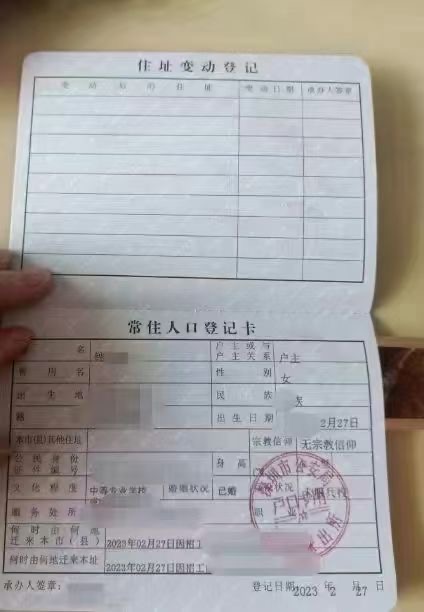 住址变动登记
变动后的住址 变动日期 承办人签章
常住人口登记卡
名 户主或与户主关系 户主
曾用名 性别 女
出生地 民族
籍 出生日期 2月27日
本市(县)其他住址 宗教信仰 无宗教信仰
公民身份证件编号 身高
文化程度 中等专业学校 婚姻状况 已婚 状况
服务处所
何时由何地迁来本市(县) 2023年02月27日因招工
何时由何地迁来本址 2023年02月27日因招工
承办人签章: 登记日期: 2023 年 2 月 27 日